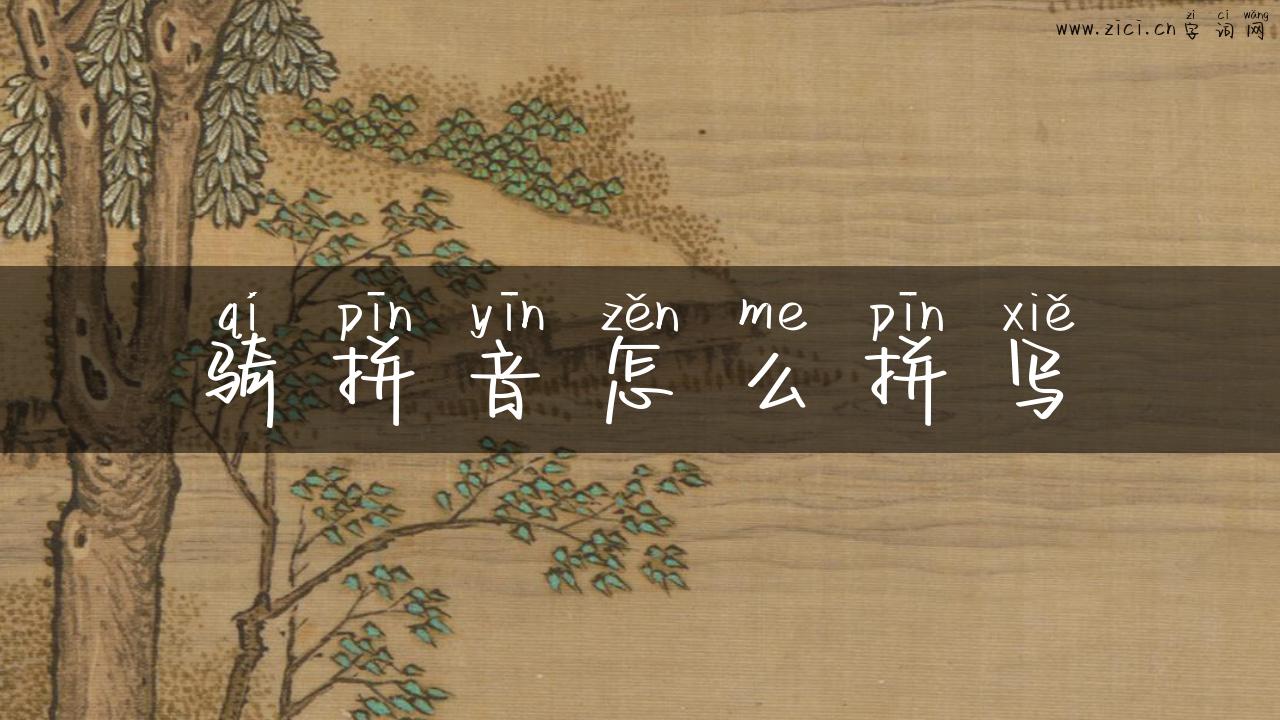 zì cí wǎng
www.zici.cn 字词网
qí pīn yīn zěn me pīn xiě
骑拼音怎么拼写